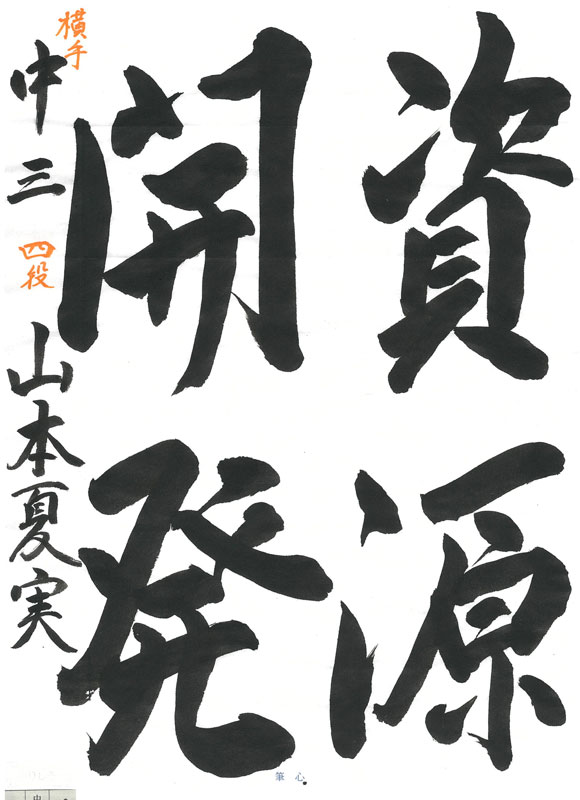 資源
開発
横手
中三 四段 山本夏実
筆心